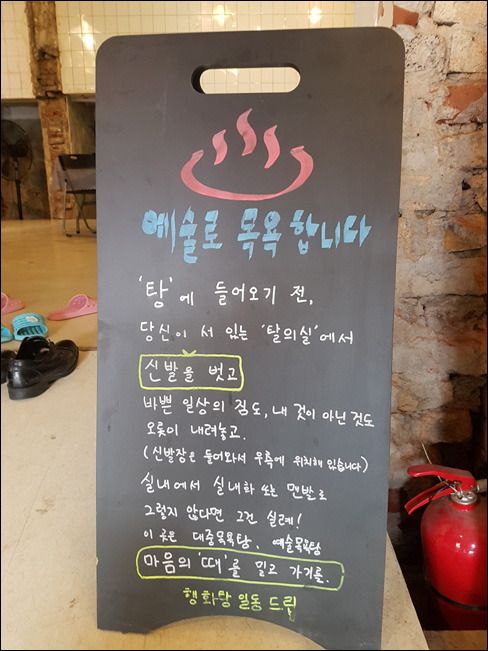 예술로 목욕합니다
'탕'에 들어오기 전,
당신이 서 있는 '탈의실'에서
신발을 벗고
바쁜 일상의 짐도, 내 것이 아닌 것도
오롯이 내려놓고.
(신발장은 들어와서 우측에 위치해 있습니다)
실내에서 실내화 또는 맨발로
그렇지 않다면 그건 실례!
이 곳은 대중목욕탕, 예술목욕탕
마음의 '때'를 밀고 가기를.
행화탕 일동 드림